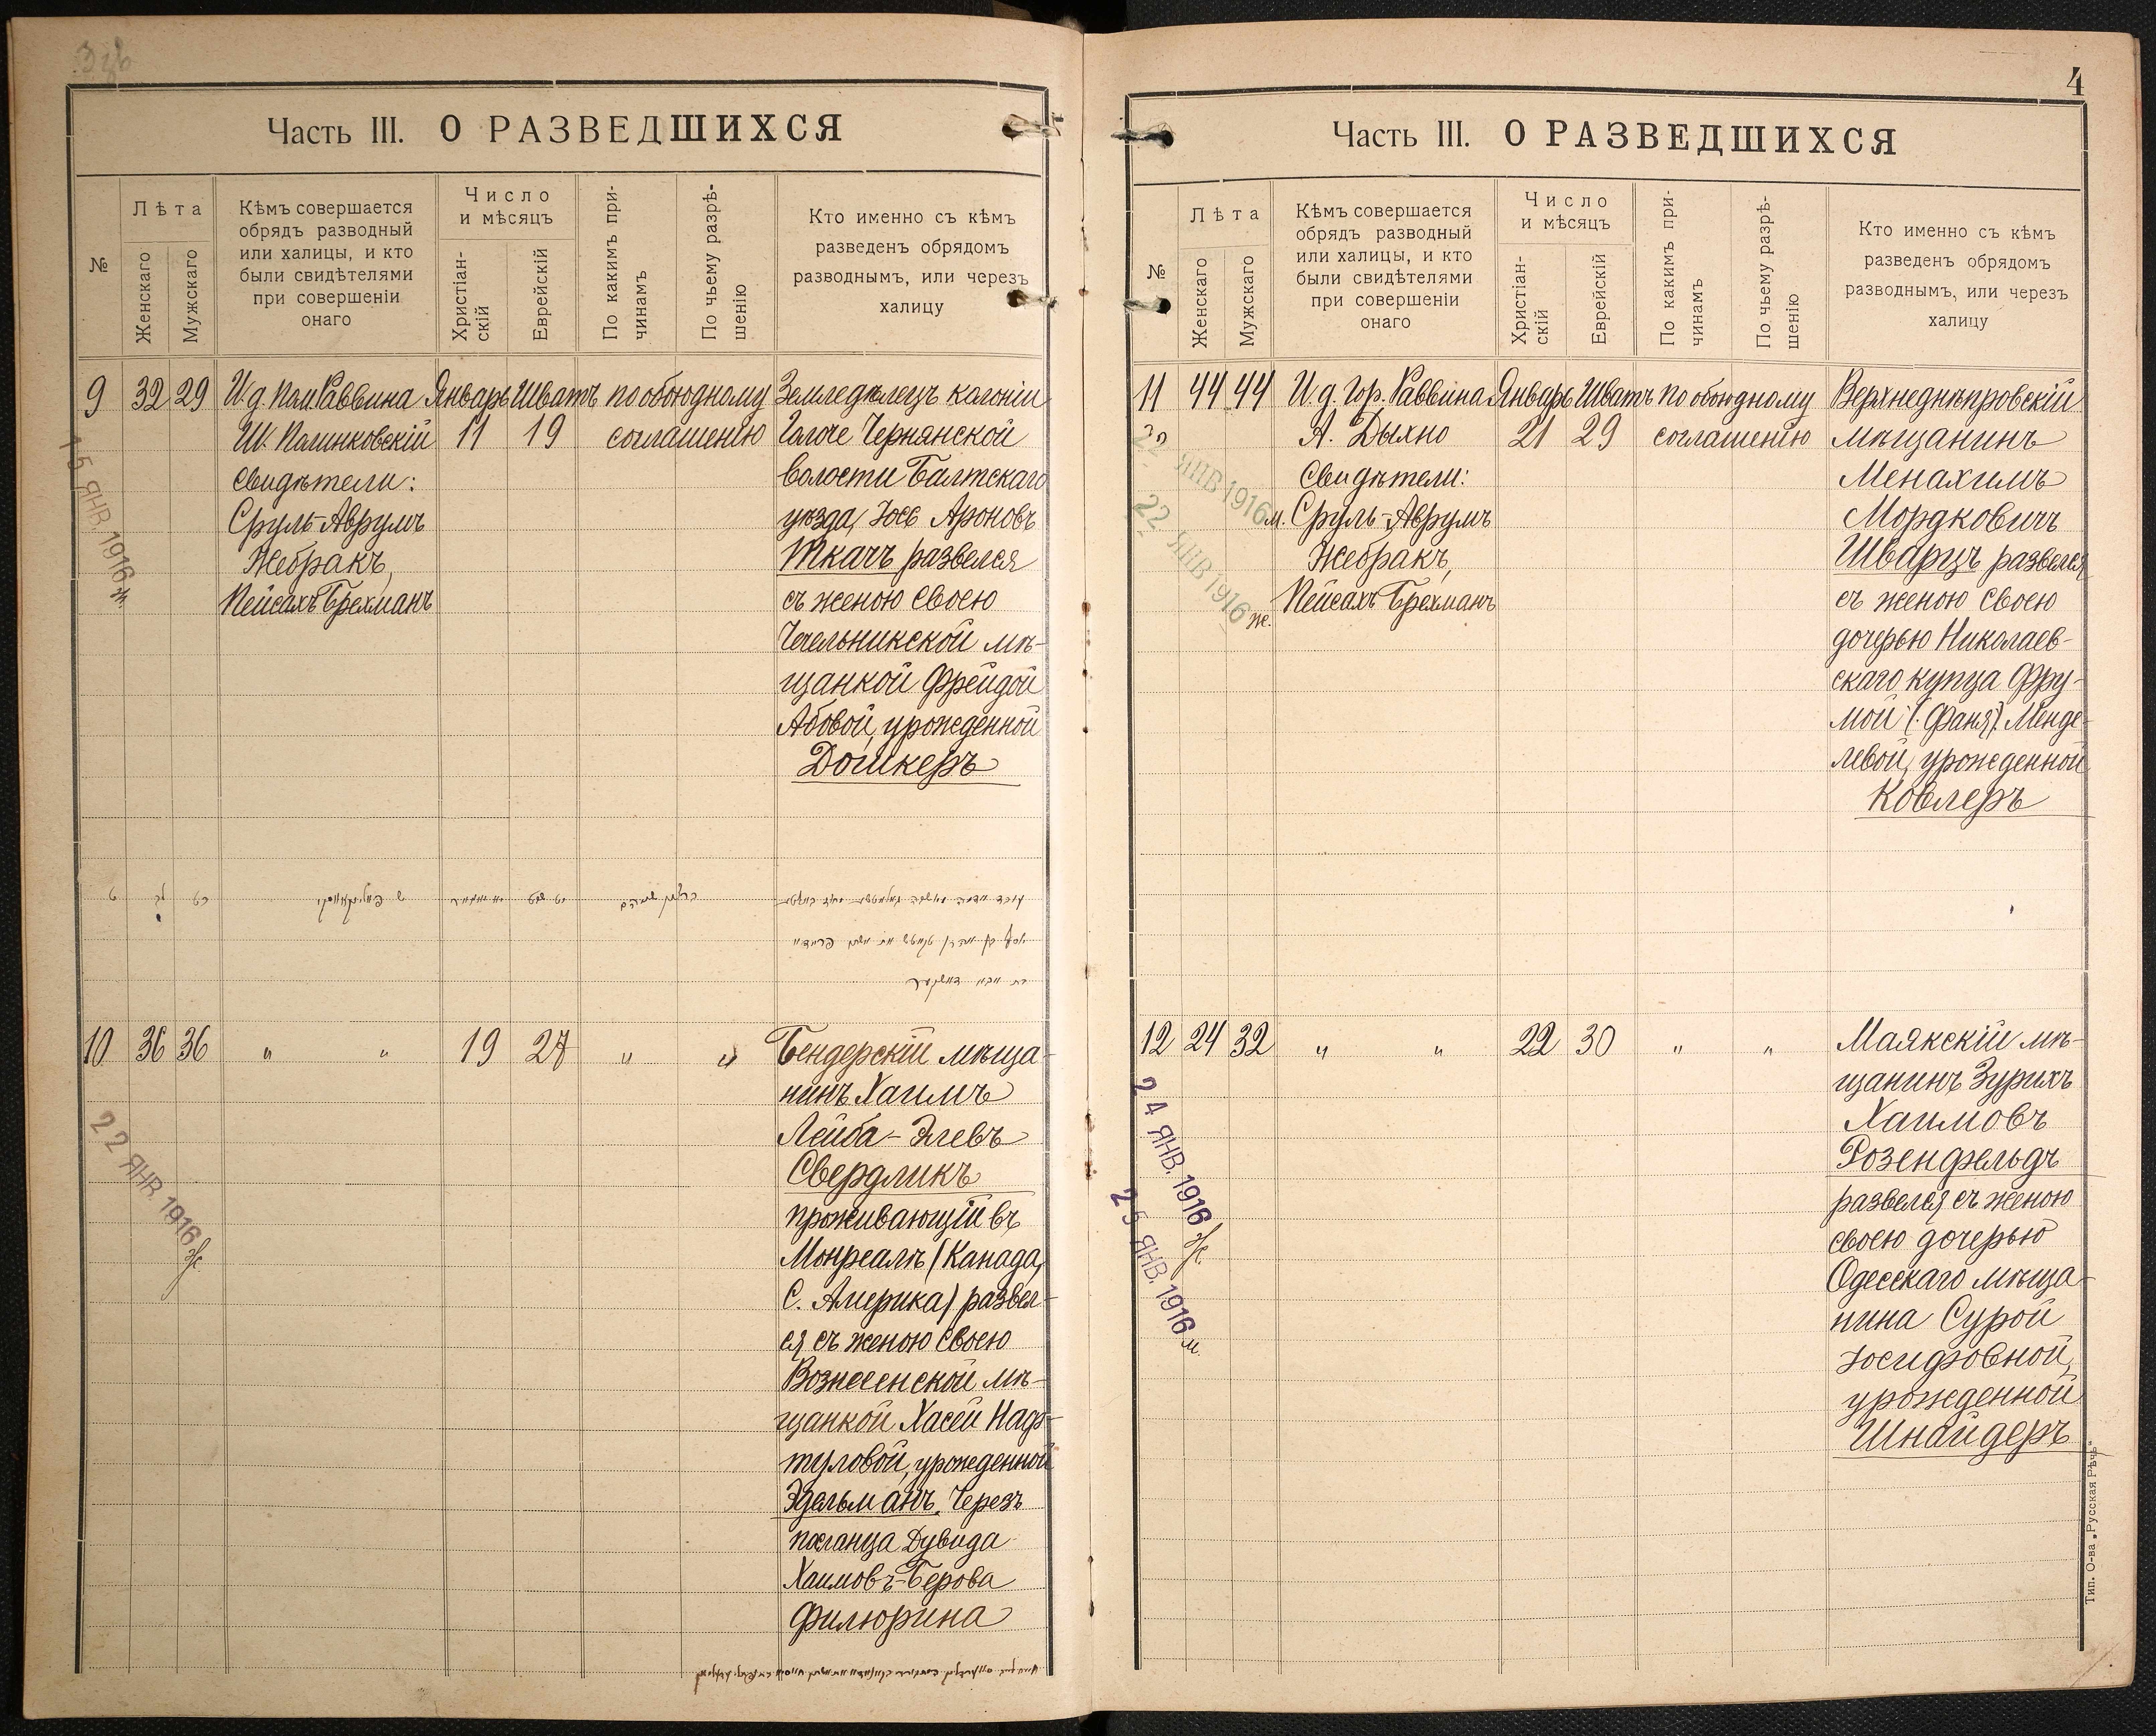 Часть III. О РАЗВЕДШИХСЯ
№
Лѣта
Женскаго
Мужскаго
Кѣмъ совершается
обрядъ разводный
или халицы, и кто
были свидѣтелями
при совершеніи
онаго
Число
и мѣсяцъ
Христіан-
скій
Еврейскій
По какимъ при-
чинамъ
По чьему разрѣ-
шенію
Кто именно съ кѣмъ
разведенъ обрядомъ
разводнымъ, или черезъ
халицу
9 32 29 И.д. Пом. Раввина Январь Шватъ по обоюдному Земледѣлецъ колоніи
Ш. Полинковскій 11 19 соглашенію Гагоче Чернянской
Свидѣтели: волости Балтскаго
Сруль-Аврумъ уѣзда, Іось Ароновъ
Жебракъ, Ткачъ развелся
Пейсахъ Брехманъ съ женою своею
Чечельникской мѣ-
щанкой Фрейдой
Абовой, урожденной
Дошкеръ
15 ЯНВ. 1916 ж.
10 36 36 " " 19 27 " " Бендерскій мѣща-
нинъ Хаимъ
Лейба-Элевъ
Свердликъ
проживающій въ
Монреалѣ (Канада,
С. Америка) развел-
ся съ женою своею
Вознесенской мѣ-
щанкой Хасей Наф-
туловой, урожденной
Эдельманъ. Черезъ
посланца Дувида
Хаимовъ-Берова
Филюрина
22 ЯНВ. 1916 ж
4
Часть III. О РАЗВЕДШИХСЯ
№
Лѣта
Женскаго
Мужскаго
Кѣмъ совершается
обрядъ разводный
или халицы, и кто
были свидѣтелями
при совершеніи
онаго
Число
и мѣсяцъ
Христіан-
скій
Еврейскій
По какимъ при-
чинамъ
По чьему разрѣ-
шенію
Кто именно съ кѣмъ
разведенъ обрядомъ
разводнымъ, или черезъ
халицу
11 44 44 И.д. Гор. Раввина Январь Шватъ по обоюдному Верхнеднѣпровскій
А. Дыхно 21 29 соглашенію мѣщанинъ
Свидѣтели: Менахимъ
Сруль-Аврумъ Мордковичъ
Жебракъ, Шварцъ развелся
Пейсахъ Брехманъ съ женою своею
дочерью Николаев-
скаго купца Фру-
мой (Фаня) Менде-
левой, урожденной
Ковлеръ
22 ЯНВ 1916 м.
22 ЯНВ 1916 ж.
12 24 32 " " 22 30 " " Маякскій мѣ-
щанинъ Зурихъ
Хаимовъ
Розенфельдъ
развелся съ женою
своею дочерью
Одесскаго мѣща-
нина Сурой
Іосифовной,
урожденной
Шнайдеръ
24 ЯНВ. 1916 ж.
25 ЯНВ. 1916 м.
Тип. О-ва „Русская Рѣчь"